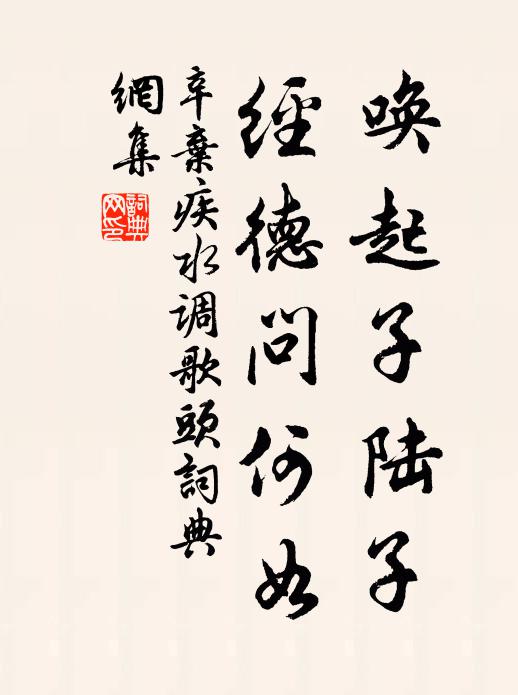 唤起子陆子
經德问何如
辛棄疾水调歌頭詞典
網集
詞典
网印